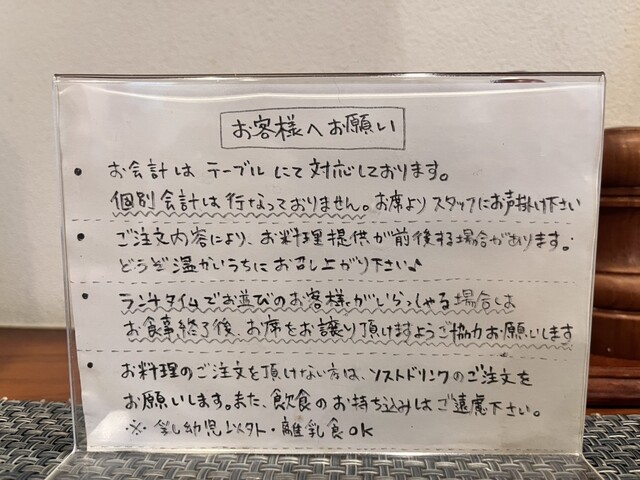 お客様へお願い
・お会計は テーブル にて 対応しております。
個別会計は行なっておりません。お席より スタッフにお声掛け下さい
・ご注文内容により、お料理提供が前後する場合があります。
どうぞ温かいうちに お召し上がり下さい♪
・ランチタイムでお並びのお客様がいらっしゃる場合は
お食事終了後、お席をお譲り頂けますようご協力お願いします
・お料理のご注文を頂けない方は、ソフトドリンクのご注文を
お願いします。また、飲食のお持ち込みはご遠慮下さい。
※ 乳幼児以外・離乳食OK